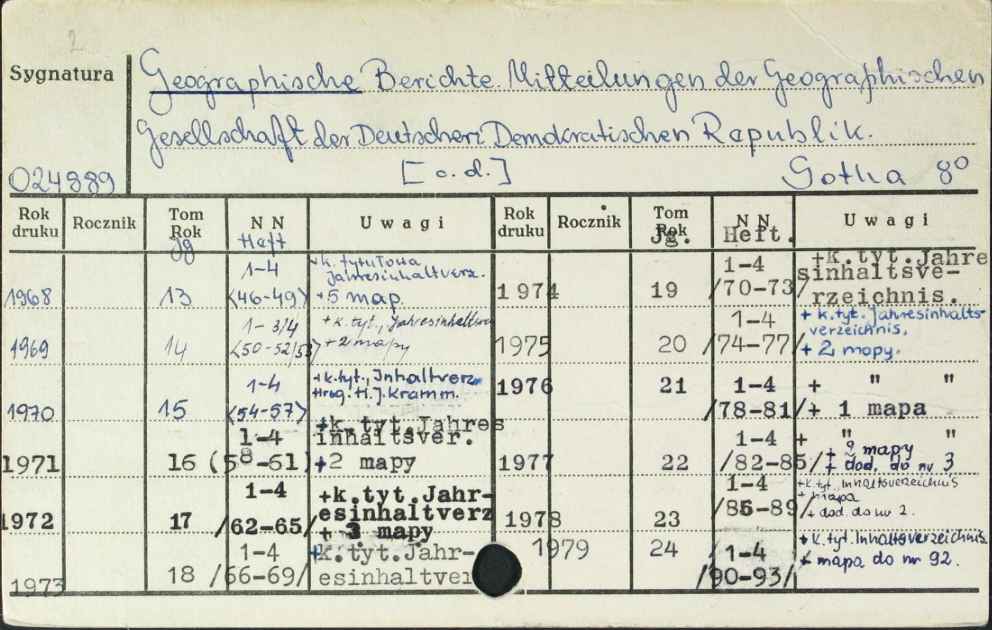 2
Sygnatura
Geographische Berichte. Mitteilungen der Geographischen
Gesellschaft der Deutschen Demokratischen Republik.
024889 [o.d.] Gotha 8°
Rok druku Rocznik Tom Rok Jg N N Heft Uwagi
1968 13 1-4 <46-49> +k. tytułowa Jahresinhaltverz. +5 map.
1969 14 1-3/4 <50-52/53> +k.tyt., Jahresinhaltverz +2 mapy
1970 15 1-4 <54-57> +k.tyt., Inhaltverz. Hrsg. H.J. Kramm.
1971 16 1-4 (58-61) +k. tyt. Jahres inhaltsver. +2 mapy
1972 17 1-4 /62-65/ +k.tyt.Jahr- esinhaltverz + 3 mapy
1973 18 1-4 /66-69/ +k.tyt.Jahr- esinhaltver
Rok druku Rocznik Tom Rok Jg. N N Heft. Uwagi
1974 19 1-4 /70-73/ +k.tyt.Jahre sinhaltsve- rzeichnis.
1975 20 1-4 /74-77/ + k.tyt. Jahresinhalts- verzeichnis. + 2 mapy.
1976 21 1-4 /78-81/ + " " + 1 mapa
1977 22 1-4 /82-85/ + " " + 2 mapy + dod. do nr 3
1978 23 1-4 /86-89/ +k.tyt. Inhaltsverzeichnis + mapa + dod. do nr 2.
1979 24 1-4 /90-93/ + k.tyt. Inhaltsverzeichnis + mapa do nr 92.